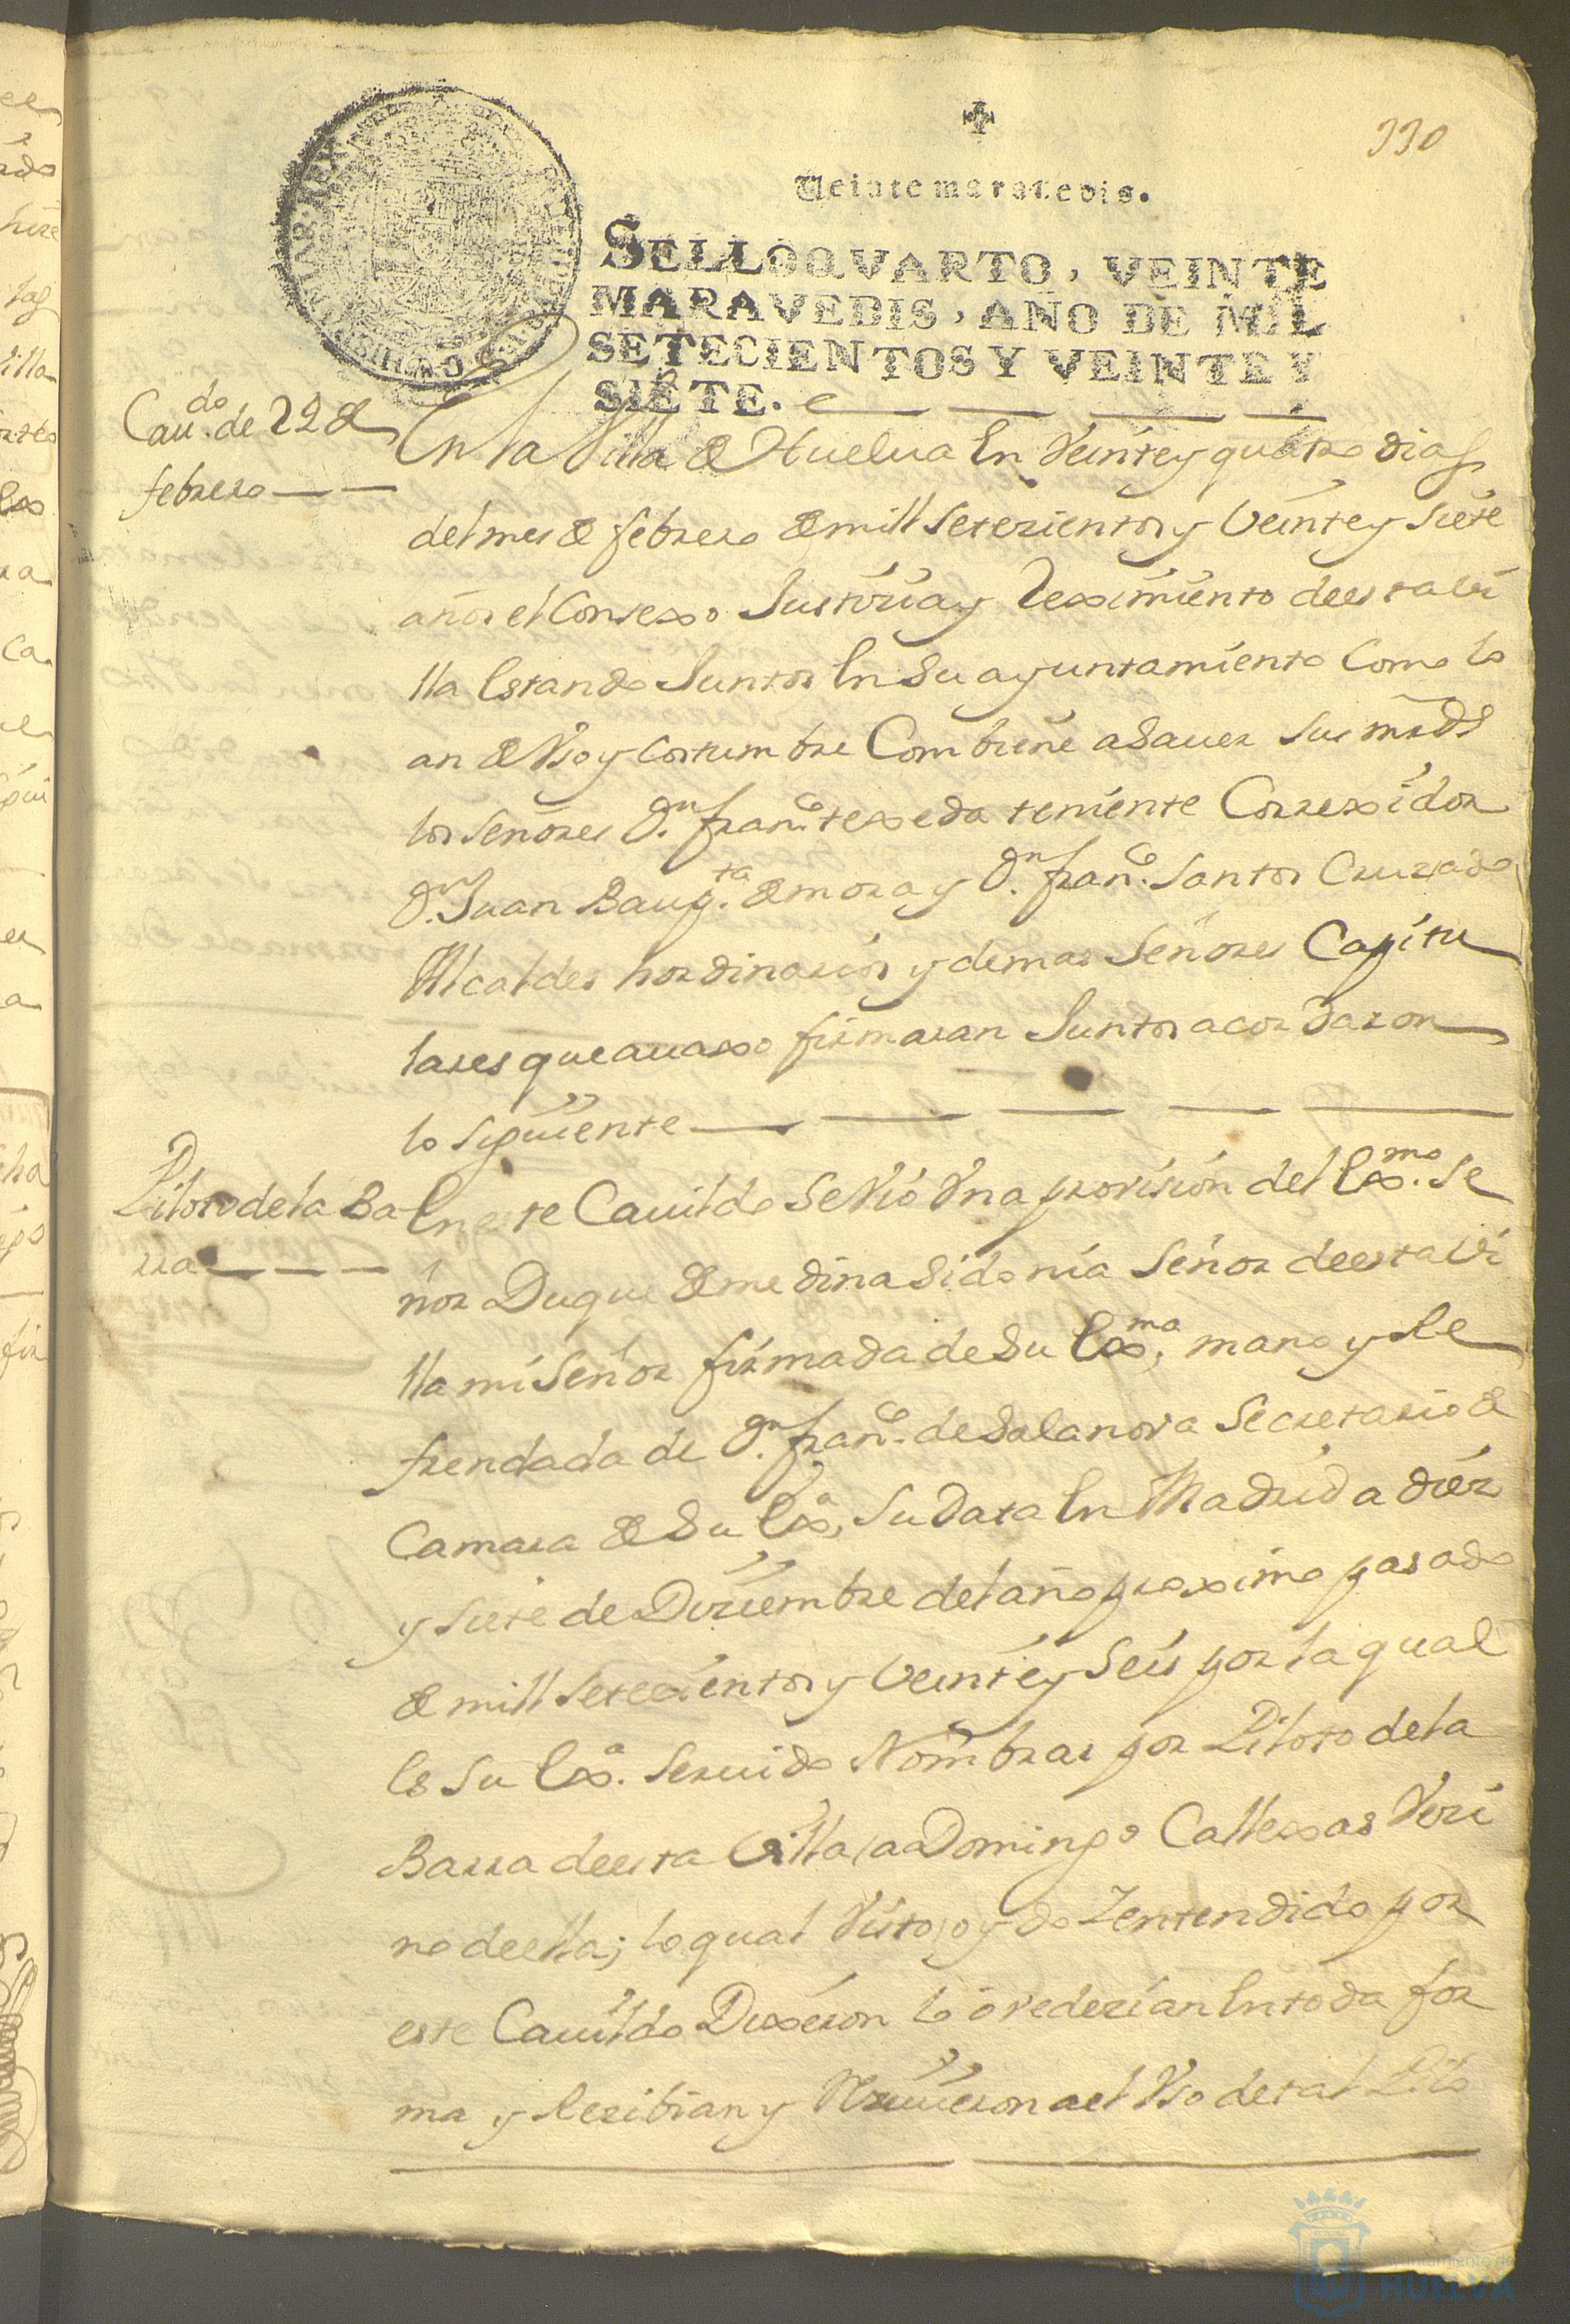 330
Veinte maravedis.
SELLO QVARTO, VEINTE
MARAVEDIS, AÑO DE MIL
SETECIENTOS Y VEINTE Y
SIETE.
Cauᵈᵒ. de 22 de
febrero
En la Villa de Huelua En Veinte y quatro dias
del mes de febrero de mill setezientos y Veinte y siete
años el Consexo Justizia y Reximiento de esta vi
lla Estando Juntos En su ayuntamiento Como lo
an de Vso y costumbre Combiene a sauer sus mrds
los señores Dⁿ. franᶜᵒ texeda teniente Correxidor
Dⁿ. Juan Baupᵗᵃ. de mora y Dⁿ. franᶜᵒ. santos Cruzado
Alcaldes hordinarios y demas señores Capitu
lares que auaxo firmaran Juntos acordaron
lo siguiente
Piloto de la Ba
rra
En este Cauildo se Vio Vna provision del Exᵐᵒ. se
ñor Duque de medina sidonia señor de esta vi
lla mi señor firmada de su Exᵐᵃ. mano y Re
frendada de Dⁿ. franᶜᵒ. de salanova secretario de
Camara de su Exᵃ. su data En Madrid a diez
y siete de Diziembre del año proximo pasado
de mill setecientos y Veinte y seis por la qual
Es su Exᵃ. seruido Nombrar por Piloto de la
Barra de esta Villa a Domingo Callexas Vezi
no de ella; lo qual Visto oydo Y entendido por
este Cauildo Dixeron lo ovedezian En toda for
ma y Rezibian y Rezuieron a el Vso de tal Pilo
Ayuntamiento de
HUELVA